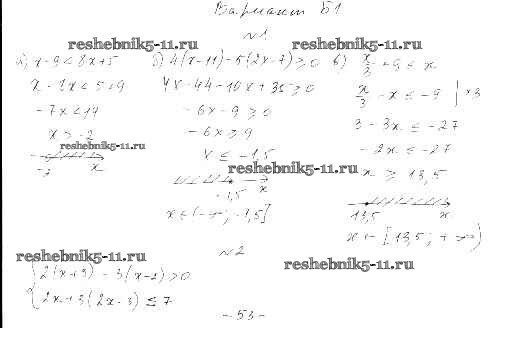 Вариант Б1
№1
reshebnik5-11.ru reshebnik5-11.ru
а) x - 9 < 8x + 5 б) 4(x-11) - 5(2x-7) ≥ 0 в) x/3 + 9 ≤ x
x - 8x < 5+9 4x - 44 - 10x + 35 ≥ 0 x/3 - x ≤ -9 | ×3
-7x < 14 -6x - 9 ≥ 0 3 - 3x ≤ -27
x > -2 -6x ≥ 9 -2x ≤ -27
reshebnik5-11.ru x ≤ -1,5 x ≥ 13,5
reshebnik5-11.ru
-2 x -1,5 x 13,5 x
x ∈ (-∞; -1,5] x ∈ [13,5; +∞)
№2
reshebnik5-11.ru reshebnik5-11.ru
2(x+3) - 3(x-2) > 0
2x + 3(2x-3) ≤ 7
- 53 -